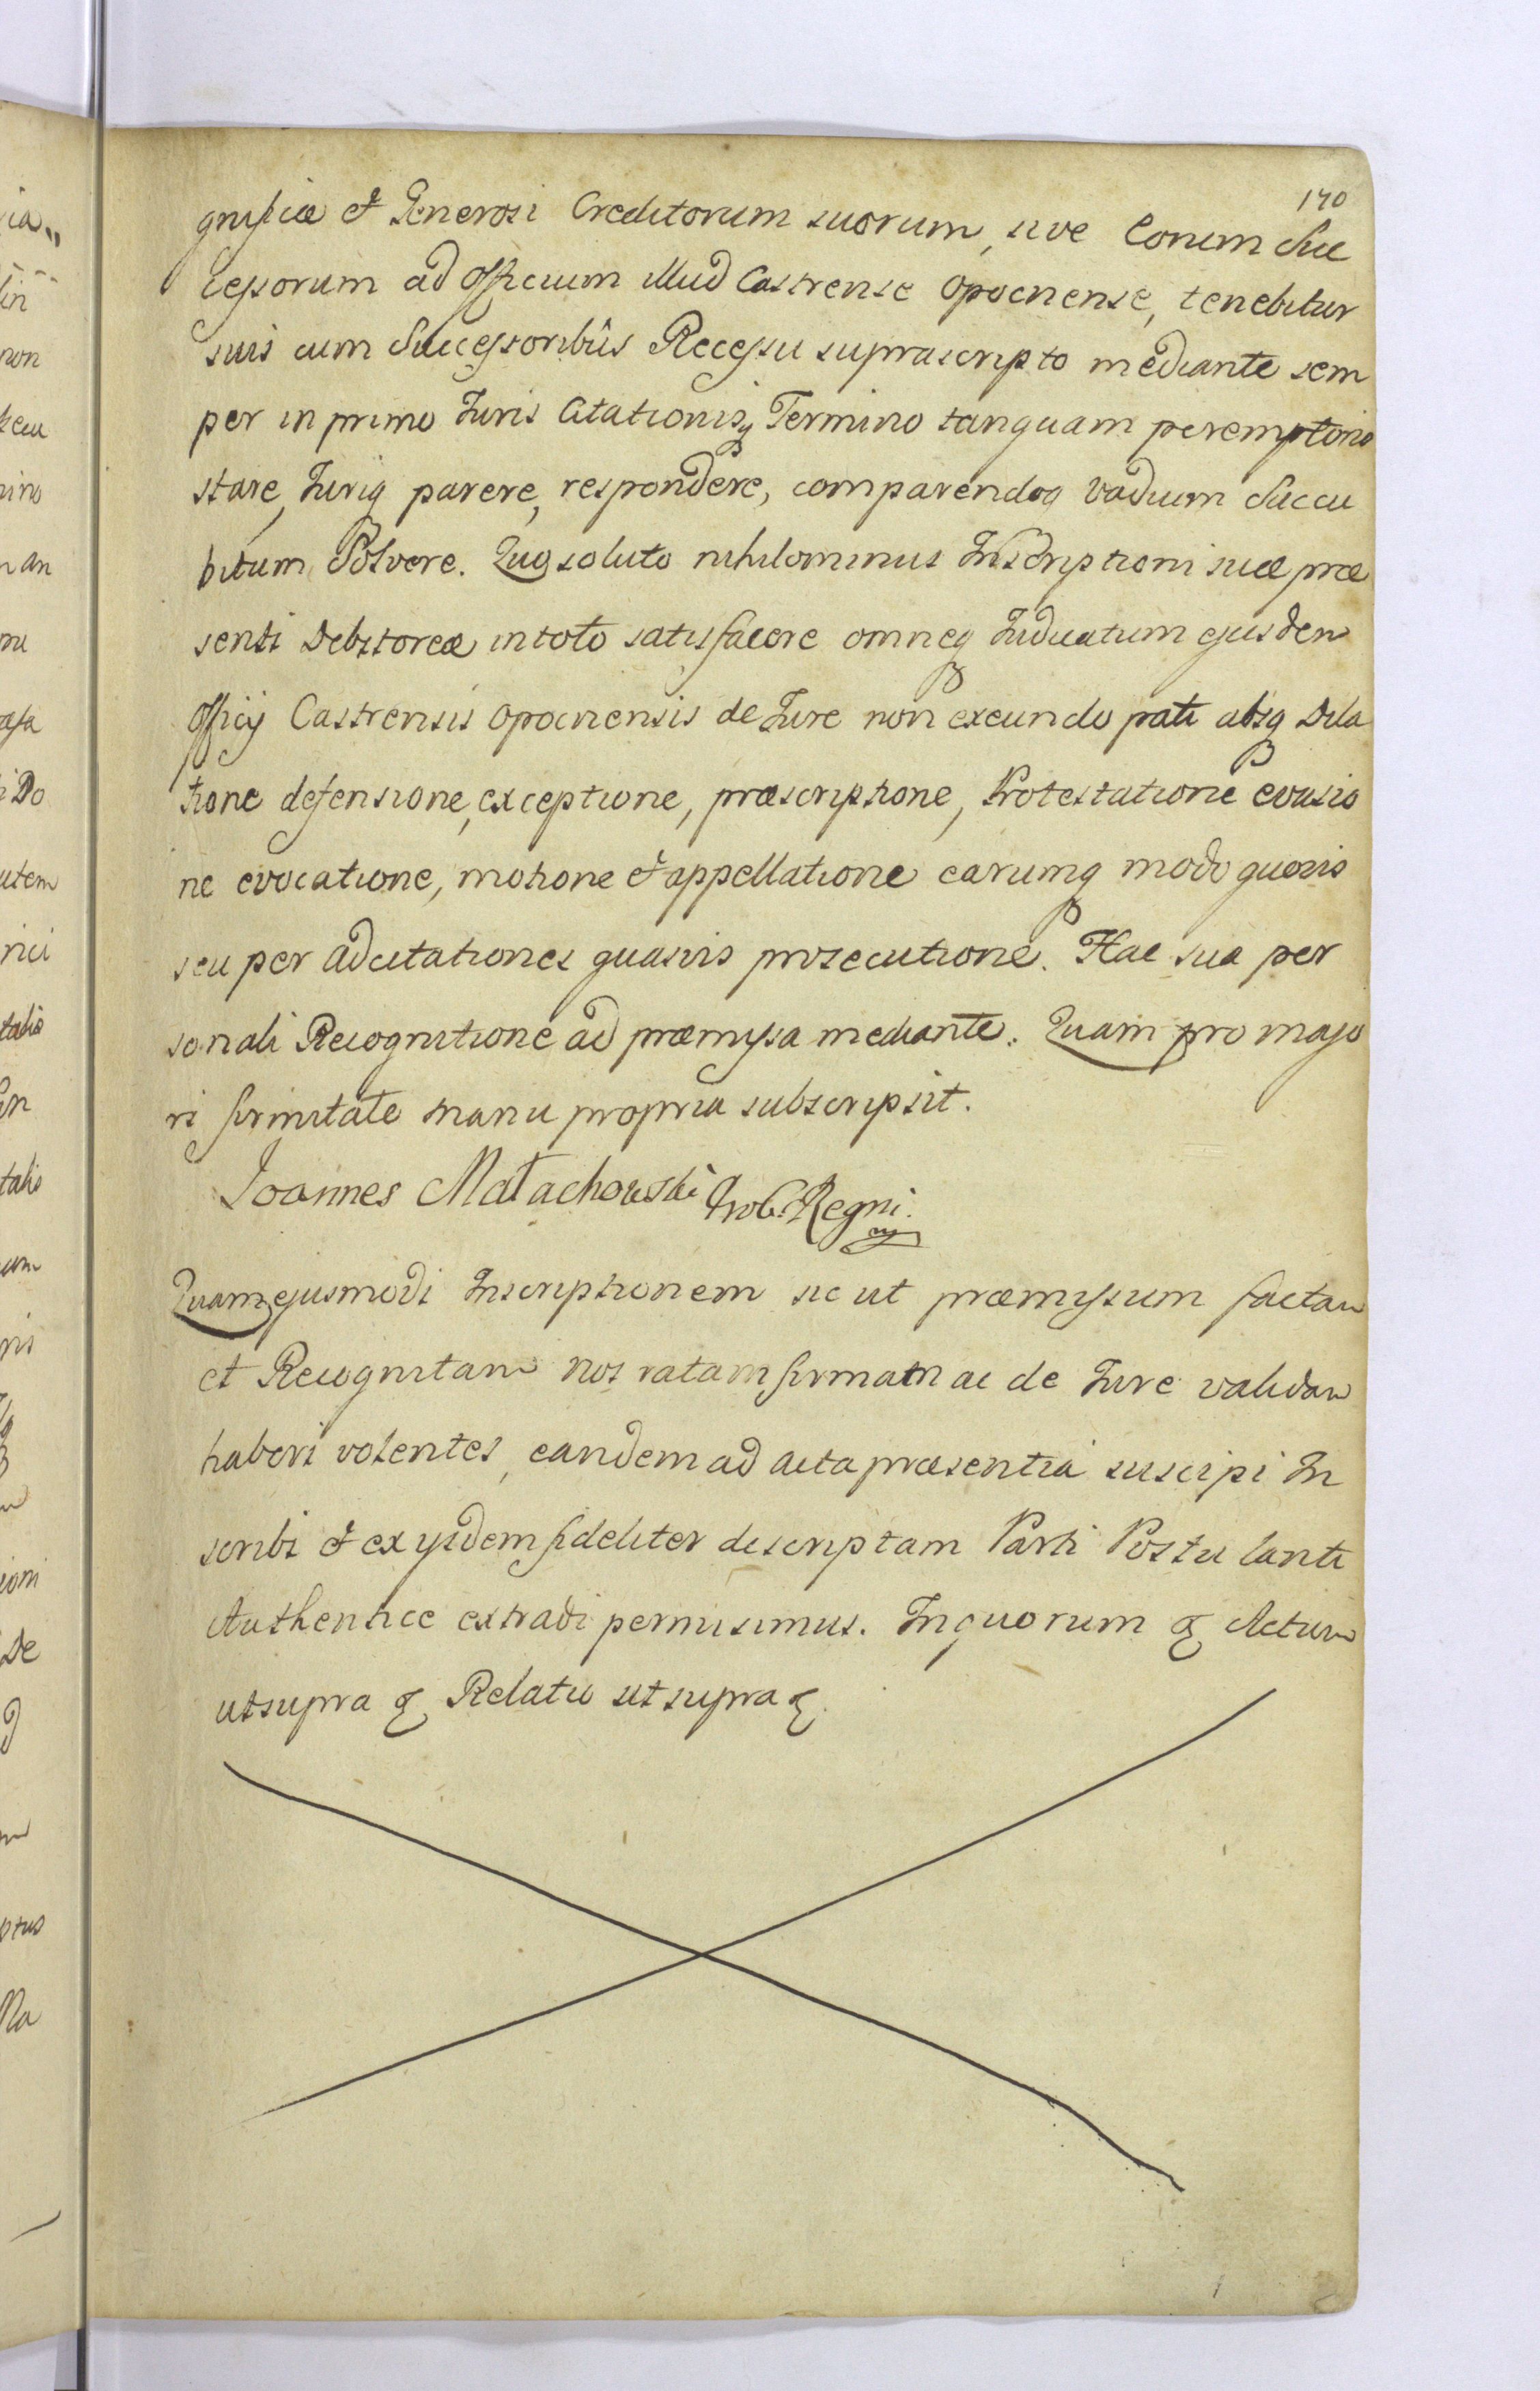 170
gnificæ et Generosi Creditorum suorum, sive Eorum Suc
cessorum ad Officium illud Castrense Opocnense, tenebitur
suis cum Successoribûs Recessu suprascripto mediante sem
per in primo Juris Citationisq Termino tanquam peremptorio
stare, Juriq parere, respondere, comparendoq vadium Succu
bitum Solvere. Quo soluto nihilominus Inscriptioni suæ præ
senti Debitoreæ in toto satisfacere omneq Judicatum ejusdem
Officij Castrensis Opocnensis de Jure non exeundo pati absq Dila
tione defensione, exceptione, præscriptione, Protestatione evasio
ne evocatione, motione et appellatione earumq modo quovis
seu per adcitationes quasvis prosecutione. Hac sua per
sonali Recognitione ad præmissa mediante. Quam pro majo
ri firmitate manu propria subscripsit.
Joannes Małachowski Regni.
Quam ejusmodi Inscriptionem sic ut præmissum factam
et Recognitam nos ratam firmam ac de Jure validam
haberi volentes, eandem ad acta præsentia suscipi In
scribi et ex ijsdem fideliter descriptam Parti Postulanti
Authentice extradi permisimus. In quorum & Actum
ut supra & Relatio ut supra &.